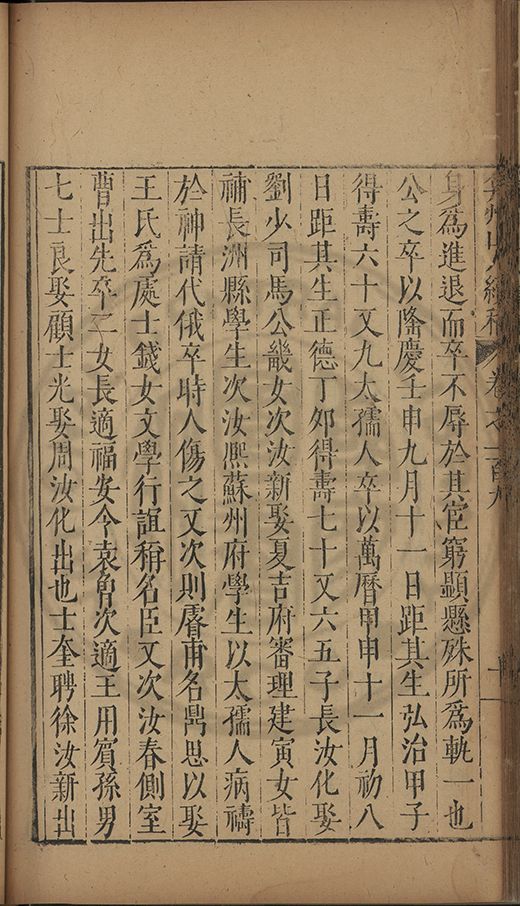 弇州山人續稿 卷之一百九 十
身爲進退而卒不辱於其宦窮顯懸殊所爲軌一也
公之卒以隆慶壬申九月十一日距其生弘治甲子
得壽六十又九太孺人卒以萬曆甲申十一月初八
日距其生正德丁卯得壽七十又六五子長汝化娶
劉少司馬公畿女次汝新娶夏吉府審理建寅女皆
補長洲縣學生次汝熈蘇州府學生以太孺人病禱
於神請代俄卒時人傷之又次則膚甫名鼎思以娶
王氏爲處士錢女文學行誼稱名臣又次汝春側室
曹出先卒二女長適福安令袁僎次適王用賓孫男
七士良娶顧士光娶周汝化出也士奎聘徐汝新出